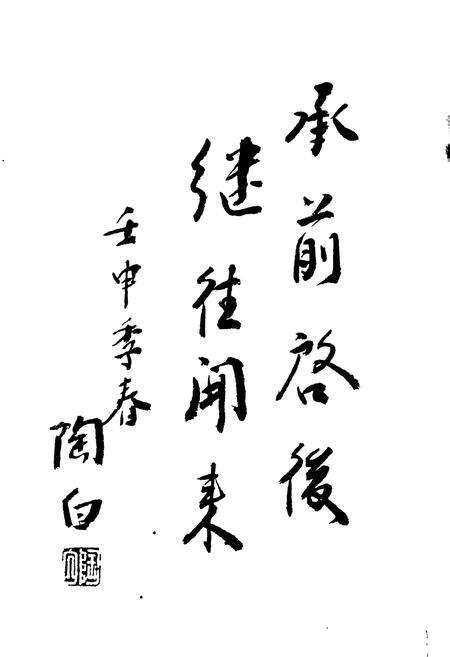 承前啓後
继往開来
壬申季春
陶白